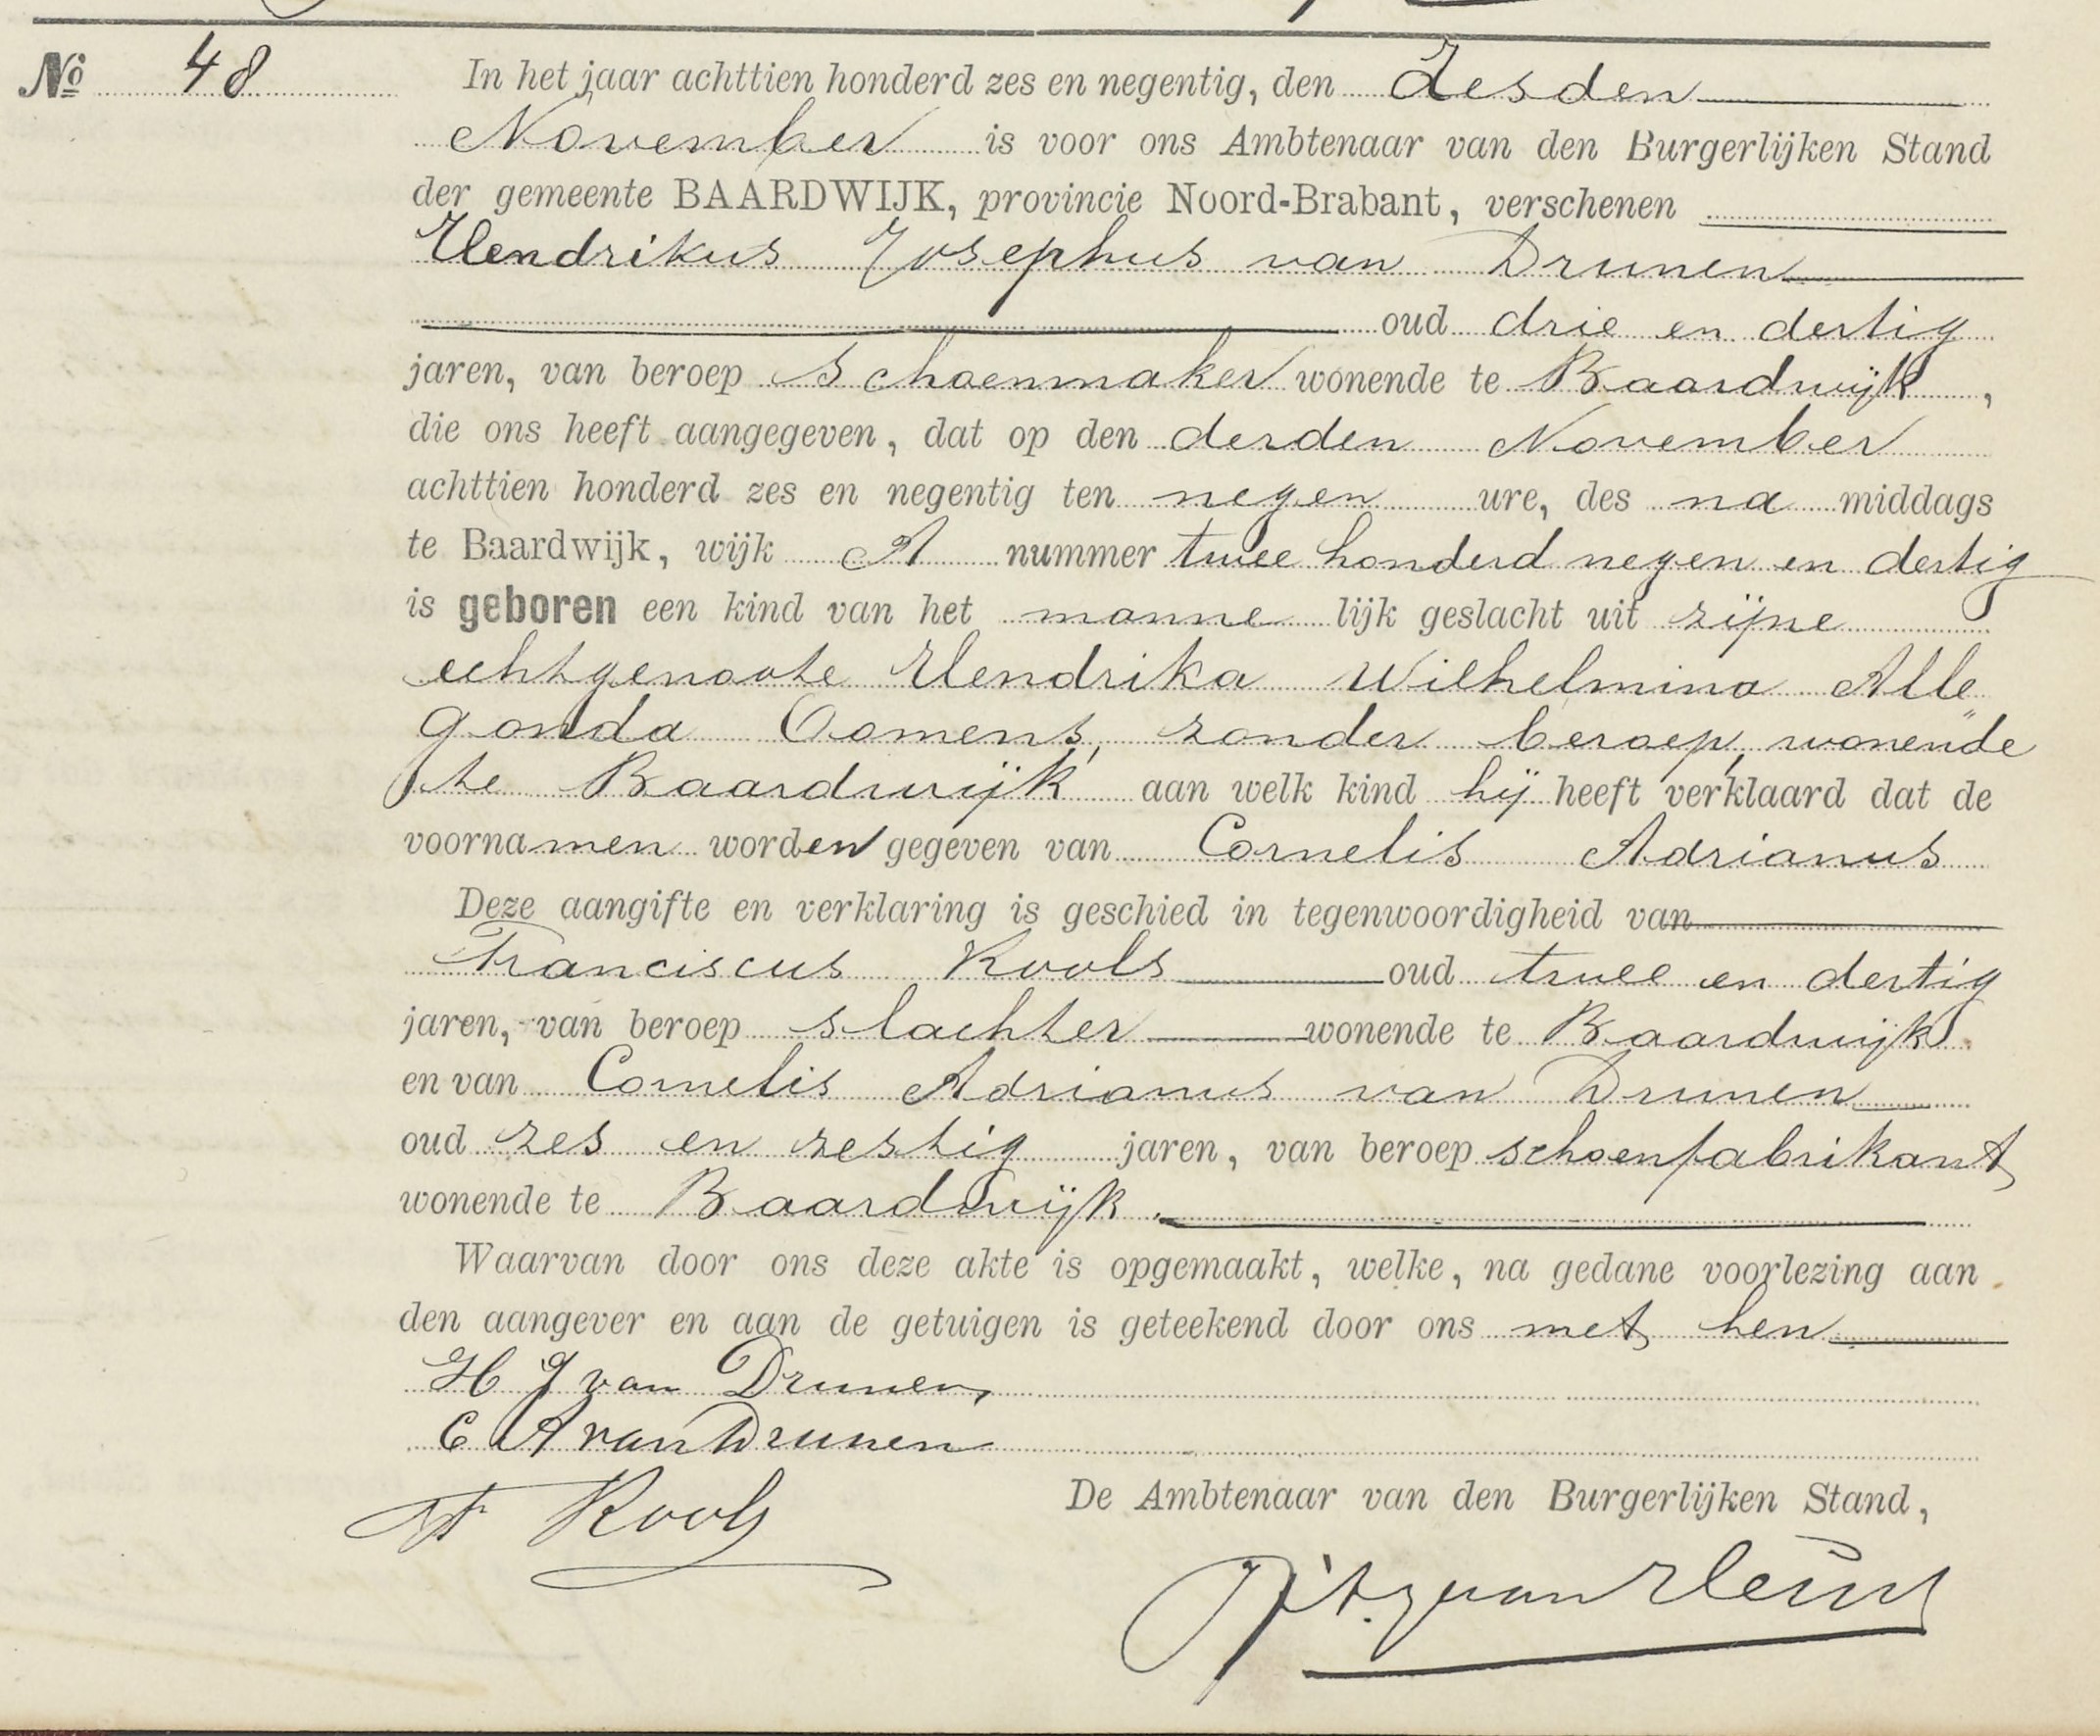 Nº 48 In het jaar achttien honderd zes en negentig, den Zesden
November is voor ons Ambtenaar van den Burgerlijken Stand
der gemeente BAARDWIJK, provincie Noord-Brabant, verschenen
Hendrikus Josephus van Drunen
oud drie en dertig
jaren, van beroep Schoenmaker wonende te Baardwijk,
die ons heeft aangegeven, dat op den derden November
achttien honderd zes en negentig ten negen ure, des na middags
te Baardwijk, wijk A nummer twee honderd negen en dertig
is geboren een kind van het manne lijk geslacht uit zijne
echtgenoote Hendrika Wilhelmina Alle„
gonda Oomens, zonder beroep, wonende
te Baardwijk aan welk kind hij heeft verklaard dat de
voornamen worden gegeven van Cornelis Adrianus
Deze aangifte en verklaring is geschied in tegenwoordigheid van
Franciscus Kools oud twee en dertig
jaren, van beroep slachter wonende te Baardwijk
en van Cornelis Adrianus van Drunen
oud zes en zestig jaren, van beroep schoenfabrikant
wonende te Baardwijk.
Waarvan door ons deze akte is opgemaakt, welke, na gedane voorlezing aan
den aangever en aan de getuigen is geteekend door ons met hen
H J van Drunen,
C A van Drunen
F Kools
De Ambtenaar van den Burgerlijken Stand,